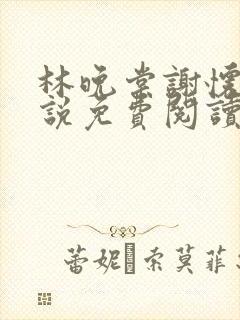 林晚棠謝懷
説免費閱讀
蕾妮·索莫菲